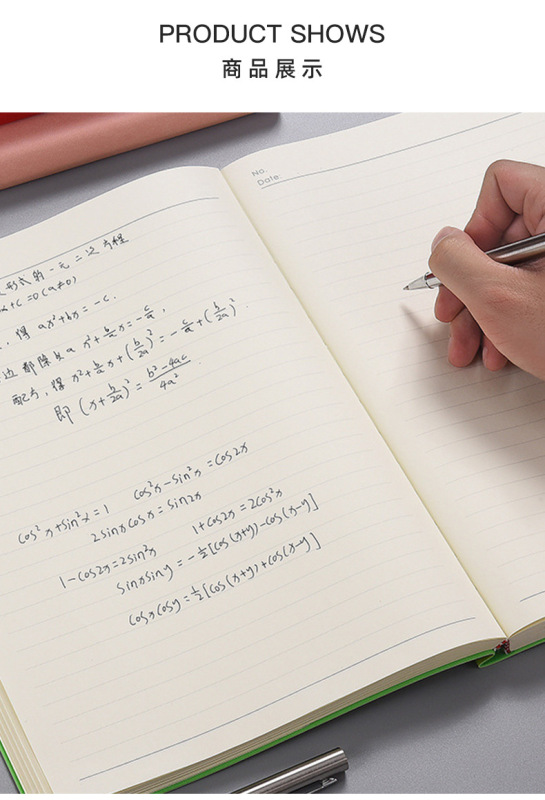 PRODUCT SHOWS
商品展示
No.
Date:
形式的一元二次方程
x+c=0(a≠0)
, 得 ax²+bx=-c.
边都除以a x²+b/a x=-c/a,
配方, 得 x²+b/a x+(b/2a)²=-c/a+(b/2a)².
即 (x+b/2a)²=b²-4ac/4a².
cos²x+sin²x=1 cos²x-sin²x=cos2x
2sinxcosx=sin2x
1-cos2x=2sin²x 1+cos2x=2cos²x
sinxsiny=-½[cos(x+y)-cos(x-y)]
cosxcosy=½[cos(x+y)+cos(x-y)]